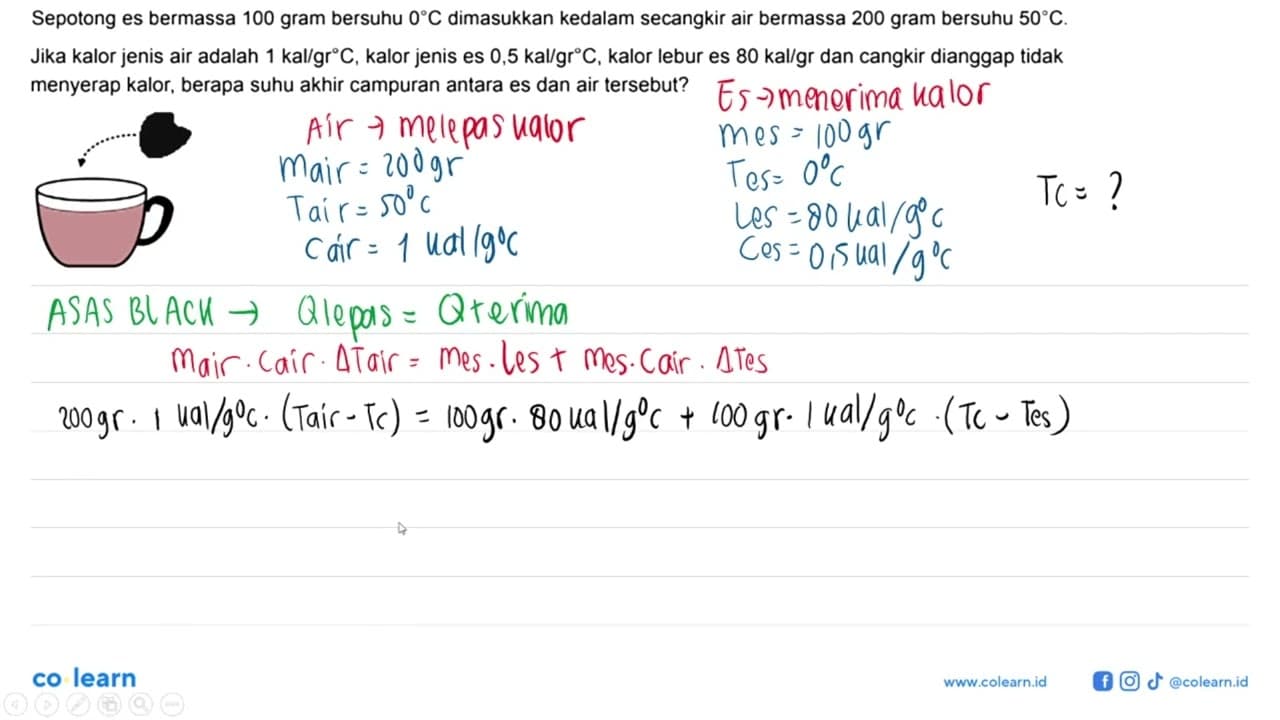 Sepotong es bermassa 100 gram bersuhu 0°C dimasukkan kedalam secangkir air bermassa 200 gram bersuhu 50°C.
Jika kalor jenis air adalah 1 kal/gr°C, kalor jenis es 0,5 kal/gr°C, kalor lebur es 80 kal/gr dan cangkir dianggap tidak
menyerap kalor, berapa suhu akhir campuran antara es dan air tersebut?
Air → melepas kalor
Mair = 200gr
Tair = 50°C
Cair = 1 kal/g°C
Es → menerima kalor
mes = 100gr
Tes = 0°C
Les = 80 kal/g°C
Ces = 0,5 kal/g°C
Tc = ?
ASAS BLACK → Qlepas = Qterima
Mair . Cair . ΔTair = Mes . Les + Mes . Cair . ΔTes
200gr . 1 kal/g°C . (Tair - Tc) = 100gr . 80 kal/g°C + 100 gr . 1 kal/g°C . (Tc - Tes)
co learn
www.colearn.id
@colearn.id